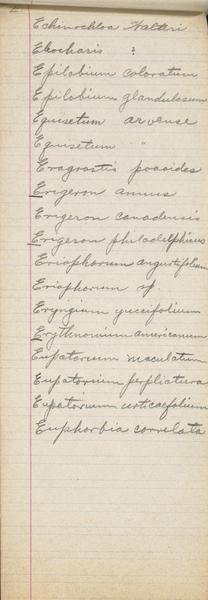 Echinochloa Walteri
Eleocharis ?
Epilobium coloratum
Epilobium glandulosum
Equisetum arvense
Equisetum "
Eragrostis poaoides
Erigeron annus
Erigeron canadensis
Erigeron philadelphicus
Eriophorum angustifolium
Eriophorum sp.
Eryngium yuccifolium
Erythronium americanum
Eupatorium maculatum
Eupatorium perfoliatum
Eupatorium urticaefolium
Euphorbia corrolata